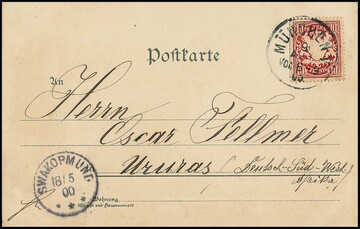 Postkarte
MÜNCHEN
An
Herrn
Oscar Fellmer
Ururas (Deutsch-Süd-West
Afrika)
SWAKOPMUND
18/5
00
Wohnung